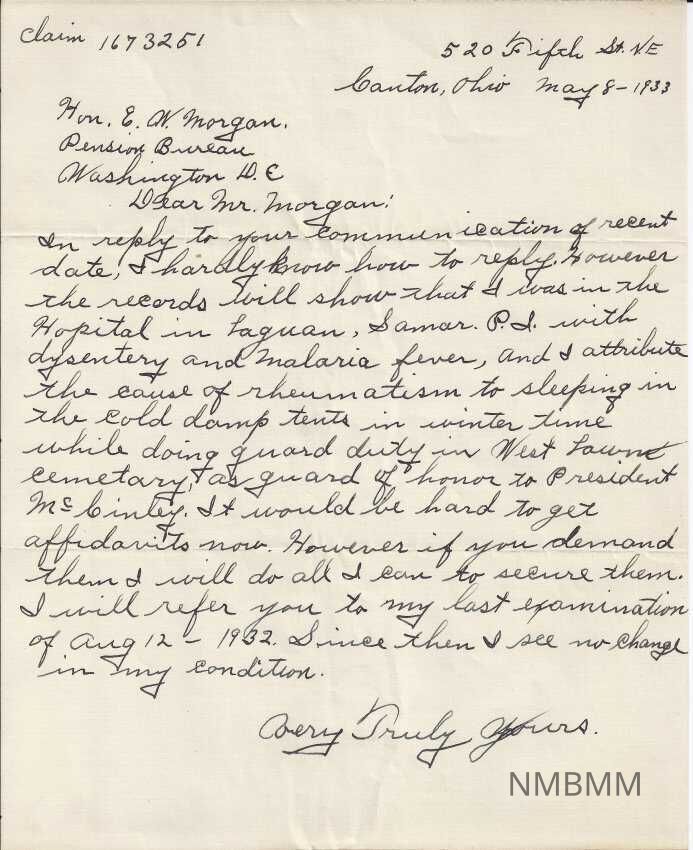 Claim 1673251
520 Fifth St. N.E
Canton, Ohio May 8-1933
Hon. E. W. Morgan.
Pension Bureau
Washington D.C
Dear Mr. Morgan:
In reply to your communication of recent
date, I hardly know how to reply. However
the records will show that I was in the
Hopital in Laguan, Samar. P.I. with
dysentery and Malaria fever, and I attribute
the cause of rheumatism to sleeping in
the cold damp tents in winter time
while doing guard duty in West Lawn
cemetary, as guard of honor to President
McCinley. It would be hard to get
affidavits now. However if you demand
them I will do all I can to secure them.
I will refer you to my last examination
of Aug 12 - 1932. Since then I see no change
in my condition.
Very Truly Yours.
NMBMM